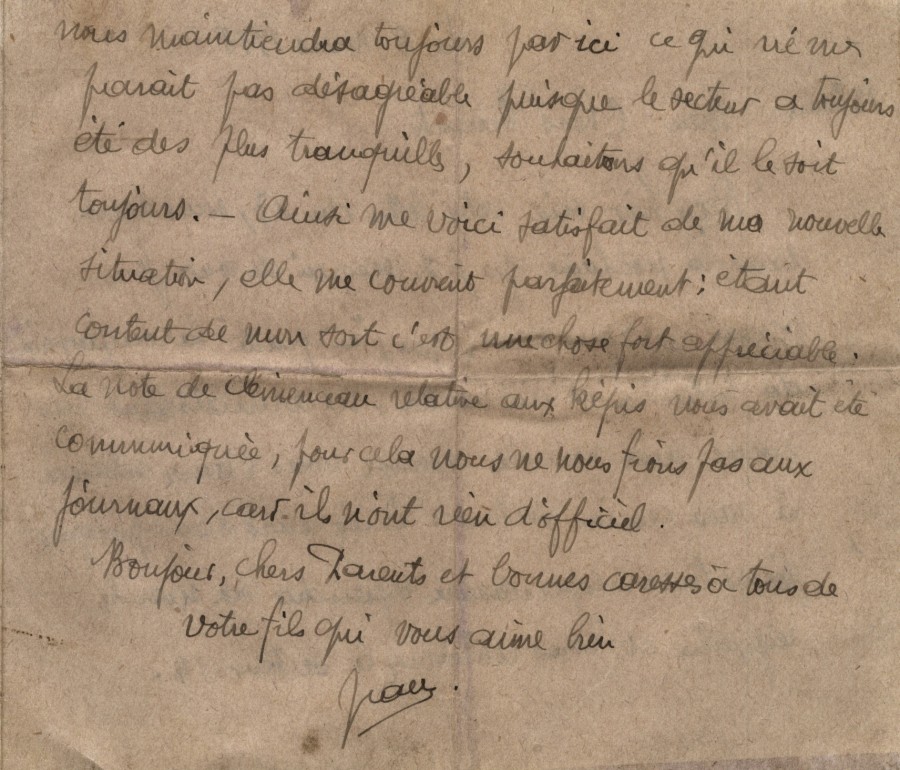 nous maintiendra toujours par ici ce qui ne me
parait pas désagréable puisque le secteur a toujours
été des plus tranquille, souhaitons qu'il le soit
toujours. — Ainsi me voici satisfait de ma nouvelle
situation, elle me convient parfaitement ; étant
content de mon sort c'est une chose fort appréciable.
La note de Clémenceau relative aux képis nous avait été
communiquée, pour cela nous ne nous fions pas aux
journaux, car ils n'ont rien d'officiel.
Bonjour, chers Parents et bonnes caresses à tous de
votre fils qui vous aime bien